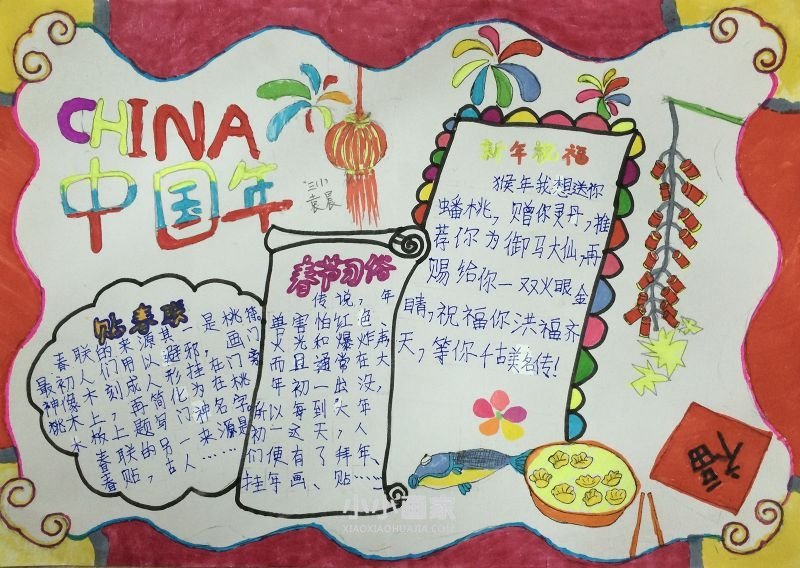 CHINA
中国年
三(1)
袁晨
贴春联
春联的来源其一是桃符
最初人们用以避邪，画门
神像木刻成人形挂在门旁
桃木上，再简化为在桃
木板上题写门神名字
春联的另一来源是
春贴，古人……
春节习俗
传说，年
兽害怕红色、
火光和爆炸声
而且通常在大
年初一出没，
所以每到大年
初一这天，人
们便有了拜年、
挂年画、贴……
新年祝福
猴年我想送你
蟠桃，赠你灵丹，推
荐你为御马大仙，再
赐给你一双火眼金
睛，祝福你洪福齐
天，等你千古美名传！
福
小小画家
XIAOXIAOHUAJIA.COM